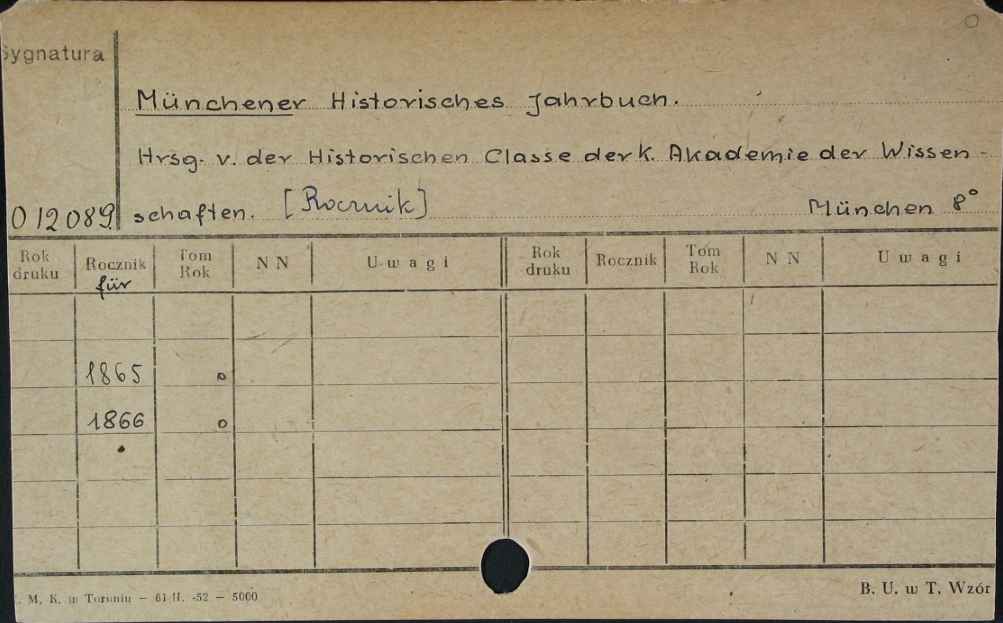 Sygnatura
Münchener Historisches Jahrbuch.
Hrsg. v. der Historischen Classe der K. Akademie der Wissen-
012089 schaften. [Rocznik] München 8°
Rok druku Rocznik Tom Rok N N U w a g i Rok druku Rocznik Tom Rok N N U w a g i
für
1865 o
1866 o
. M. K. w Toruniu - 61 H. -52 - 5000 B. U. w T. Wzór